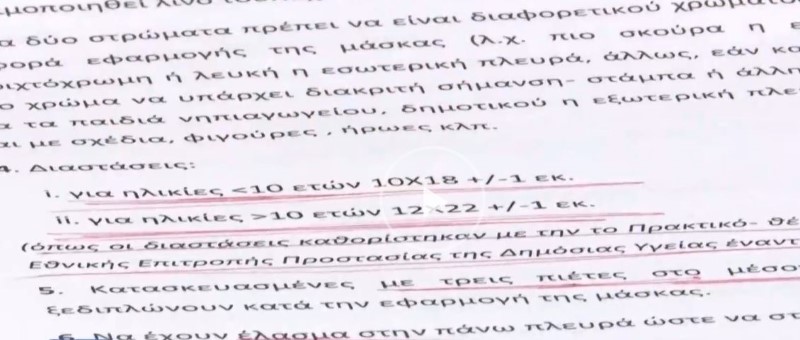 α δύο στρώματα πρέπει να είναι διαφορετικού χρώματο
φορά εφαρμογής της μάσκας (λ.χ. πιο σκούρα η ε
ιχτόχρωμη ή λευκή η εσωτερική πλευρά, άλλως, εάν κα
ο χρώμα να υπάρχει διακριτή σήμανση- στάμπα ή άλλη
α τα παιδιά νηπιαγωγείου, δημοτικού η εξωτερική πλε
αι με σχέδια, φιγούρες , ήρωες κλπ.
4. Διαστάσεις:
i. για ηλικίες <10 ετών 10Χ18 +/-1 εκ.
ii. για ηλικίες >10 ετών 12 22 +/-1 εκ.
(όπως οι διαστάσεις καθορίστηκαν με την το Πρακτικό- θέ
Εθνικής Επιτροπής Προστασίας της Δημόσιας Υγείας έναντ
5. Κατασκευασμένες με τρεις πιέτες στο μέσο
ξεδιπλώνουν κατά την εφαρμογή της μάσκας.
6. Να έχουν έλασμα στην πάνω πλευρά ώστε να στ